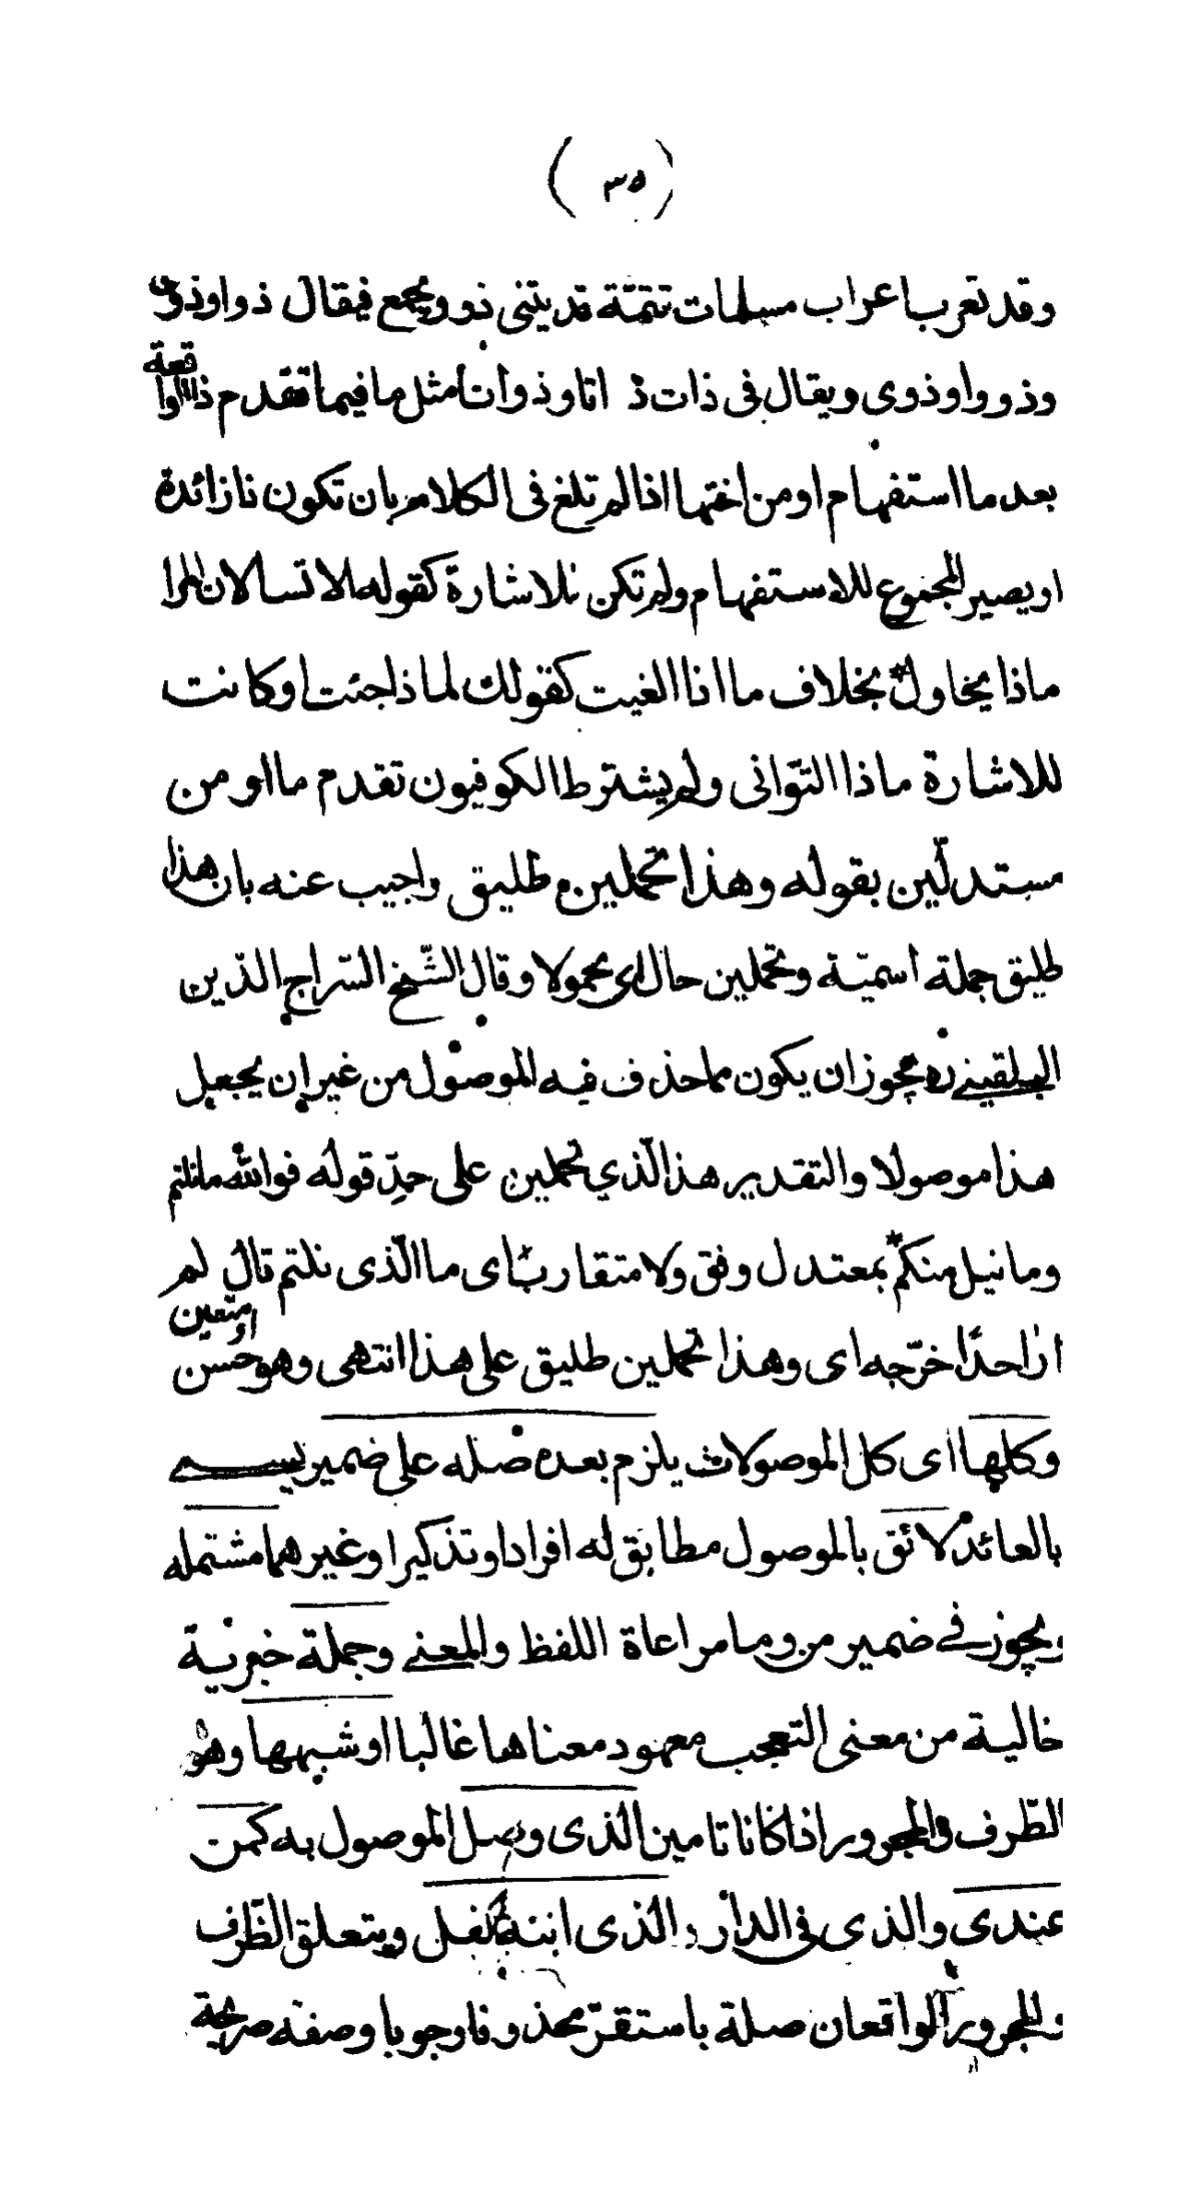 (٣٥)
وقد تعرب باعراب مسلمات تتمّة قد يثنى ذو ويجمع فيقال ذوا وذوى
وذووا وذوى ويقال فى ذات ذاتا وذواتا مثل ما فيما تقدم ذا الواقعة
بعد ما استفهام او من اختها اذا لم تلغ فى الكلام بان تكون زائدة
او يصير المجموع للاستفهام ولم تكن للاشارة كقوله الا تسالان المرا
ماذا يحاول بخلاف ما اذا الغيت كقولك لماذا جئت او كانت
للاشارة ماذا التوانى ولم يشترط الكوفيون تقدم ما او من
مستدلّين بقوله وهذا تحملين طليق واجيب عنه بان هذا
طليق جملة اسميّة وتحملين حال اى محمولا وقال الشّيخ السّراج الدّين
البلقينى ره يجوز ان يكون مما حذف فيه الموصول من غير ان يجعل
هذا موصولا والتقدير هذا الّذي تحملين على حدّ قوله فوالله ما نلتم
وما نيل منكم بمعتدل وفق ولا متقارب اى ما الّذى نلتم قال لم
ار احدًا خرّجه اى وهذا تحملين طليق على هذا انتهى وهو حسن او متعين
وكلها اى كل الموصولات يلزم بعده صله على ضمير يسمى
بالعائد لائق بالموصول مطابق له افرادا وتذكيرا وغيرهما مشتمله
ويجوز فى ضمير من وما مراعاة اللفظ والمعنى وجملة خبرية
خالية من معنى التعجب معهود معناها غالبا او شبهها وهو
الظّرف والمجرور اذا كانا تامين الذى وصل الموصول به كمن
عندى والذى فى الدار والذى ابنه كفل ويتعلق الظّرف
والمجرور الواقعان صلة باستقرّ محذوفا وجوبا وصفه صريحة